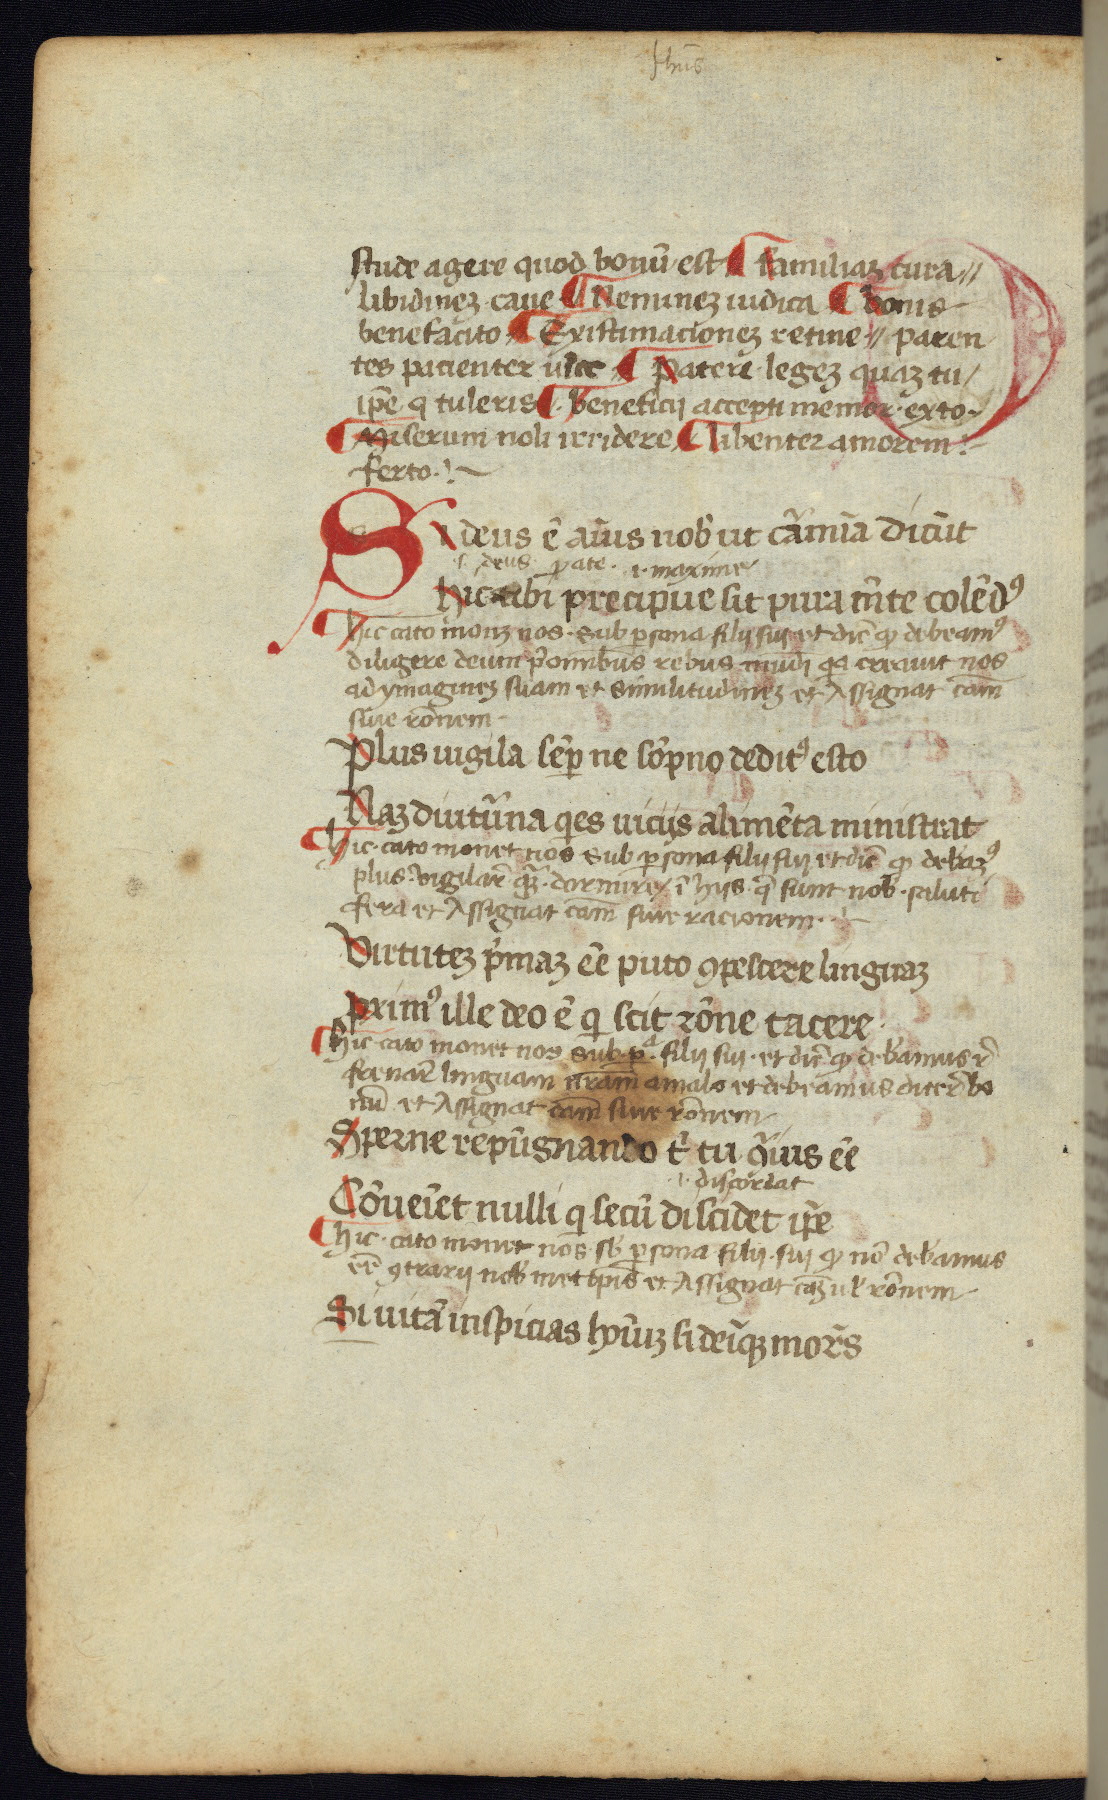 Jhus
stude agere quod bonū est ¶ Familiaꝫ cura //
libidineꝫ caue ¶ Nemineꝫ iudica ¶ bonis
benefacito ¶ Existimacioneꝫ retine // paren
tes pacienter uice ¶ Patere legeꝫ quaꝫ tu /
ip̄e q tuleris ¶ beneficij accepti memor exto
¶ Miserum noli irridere ¶ libenter amorem
ferto
Si deus ē aīus nob̄ ut cārmīa dicūt
.s. deus parte .i. maxime
hic tibi precipue sit pura mēte colēdꝰ
¶ hic cato monꝫ nos sub ꝑsona filij sui et dic̄ ꝙ debeamꝰ
diligere deum p̄ omnibus rebus mūdi q̄a creauit nos
ad ymagineꝫ suam et similitudineꝫ et Assignat cām
siue rōnem
Plus uigila sēꝑ ne sōpno deditꝰ esto
Naꝫ diutūrna q̄es uicijs alimēta ministrat
¶ hic cato monet nos sub ꝑsona filij sui et dic̄ ꝙ debeaꝫꝰ
plus uigilar̄ q̄ꝫ dormire ī hijs q̄ sunt nob̄ saluti
fera et Assignat cām siue racionem
Virtuteꝫ p̄maꝫ eē̄ puto ꝯpescere linguaꝫ
Primꝰ ille deo ē q̄ scit rōne tacere
¶ hic cato monet nos sub pᵃ filij sui et dic̄ ꝙ debeamus re
frenar̄ linguam nrām a malo et debeamus dicere bo
nū et Assignat cām siue rōnem
Sperne repūgnando t̄ tu q̄rius eē̄
.i. discordat
Cōueīet nulli q̄ secū discidet ip̄e
¶ hic cato monet nos sb̄ ꝑsona filij sui ꝙ nō debeamus
eē̄ ꝯtrarij nob̄ met ipis et Assignat caꝫ ul̄ rōnem
Si uitā inspicias hōīuꝫ si deīqꝫ mores